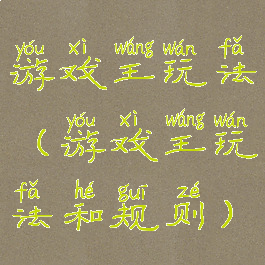 yóu xì wáng wán fǎ
游戏王玩法
yóu xì wáng wán
（游戏王玩
fǎ hé guī zé
法和规则）